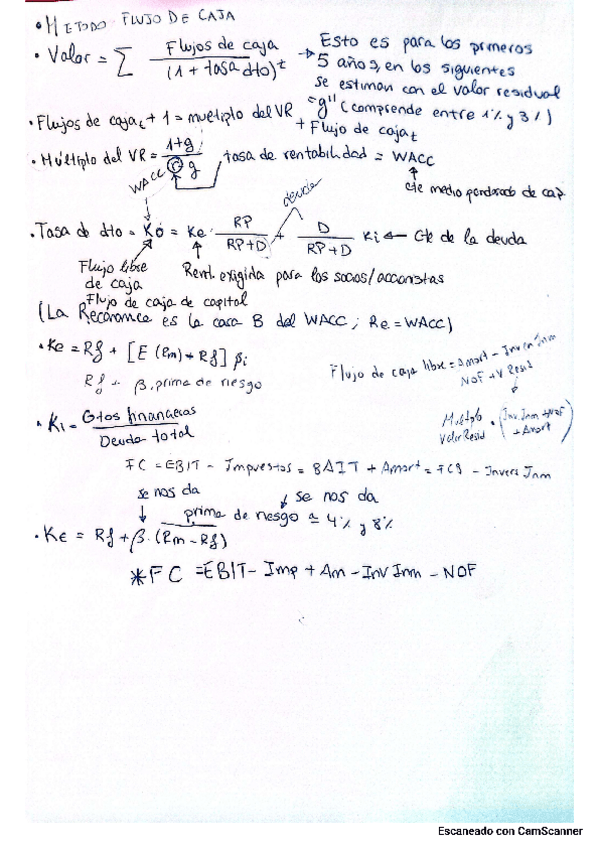 • METODO FLUJO DE CAJA
• Valor = Σ Flujos de caja / (1 + tasa dto)^t → Esto es para los primeros
5 años, en los siguientes
se estiman con el valor residual
= g" (comprende entre 1% y 3%)
• Flujos de caja t + 1 = multiplo del VR + Flujo de caja t
• Múltiplo del VR = 1+g / g tasa de rentabilidad = WACC
WACC
cte medio ponderado de cap
deuda
• Tasa de dto = Ko = Ke · RP / RP+D + D / RP+D Ki ← Cte de la deuda
Flujo libre
de caja
Rent exigida para los socios/accionistas
Flujo de caja de capital
(La Recónomica es la cara B del WACC; Re = WACC)
• Ke = Rf + [E (Rm) - Rf] βi
Rf + β · prima de riesgo
Flujo de caja libre = Amort - Inver Inm
NOF + V Resid
• Ki = Gtos financieros / Deuda total
Multiplo
Valor Resid • (Inv Inm + NOF
+ Amort)
FC = EBIT - Impuestos = BAIT + Amort = FCB - Invers Inm
se nos da
se nos da
prima de riesgo ≃ 4% y 8%
• Ke = Rf + β · (Rm - Rf)
*FC = EBIT - Imp + Am - Inv Inm - NOF
Escaneado con CamScanner